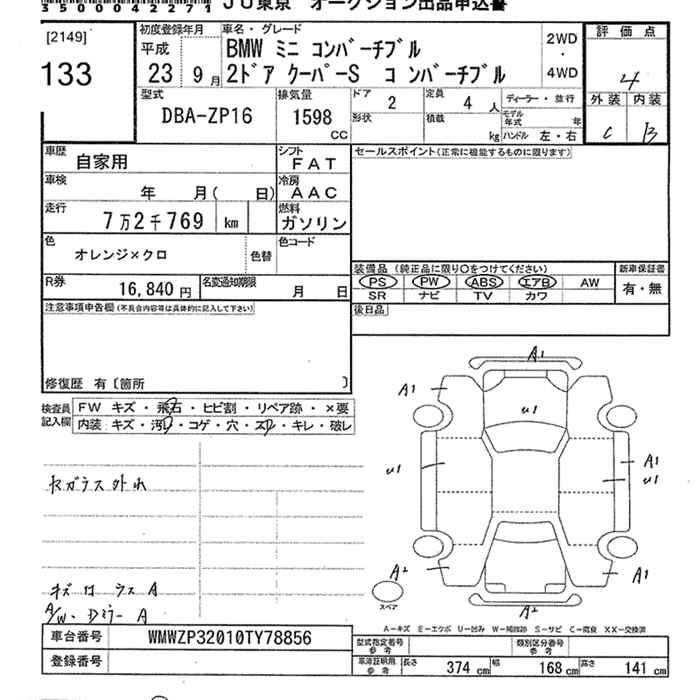 3 5 0 0 0 4 2 2 7 1 JU東京 オークション出品申込書
[2149]
133
初度登録年月
平成
23 9月
車名・グレード
BMW ミニ コンバーチブル
2ドア クーパーS コンバーチブル
2WD
・
4WD
評価点
4
外装 内装
C B
型式
DBA-ZP16
排気量
1598
CC
ドア 2
定員 4 人
形状
積載 kg
ディーラー・並行
モデル年式 年
ハンドル 左・右
車歴
自家用
シフト
FAT
車検
年 月( 日)
冷房
AAC
走行
7万2千769 km
燃料
ガソリン
色
オレンジ×クロ
色替
色コード
R券
16,840 円
名変通知期限
月 日
セールスポイント(正常に機能するものに限ります)
装備品 (純正品に限り○をつけてください)
新車保証書
PS PW ABS エアB AW
SR ナビ TV カワ
有・無
後日品
注意事項申告欄(不具合内容等は具体的に記入して下さい)
修復歴 有〔箇所 〕
検査員
記入欄
FW キズ・飛石・ヒビ割・リペア跡・×要
内装 キズ・汚れ・コゲ・穴・スレ・キレ・破レ
セガラス外れ
A/W・Dミラー A
A1
A1
u1
u1
A1
u1
A2
A1
A2
スペア
A-キズ E-エクボ U-凹み W-補修跡 S-サビ C-腐食 XX-交換済
車台番号
WMWZP32010TY78856
登録番号
型式指定番号
参考
類別区分番号
参考
車庫証明用
参考
長さ 374 cm
幅 168 cm
高さ 141 cm